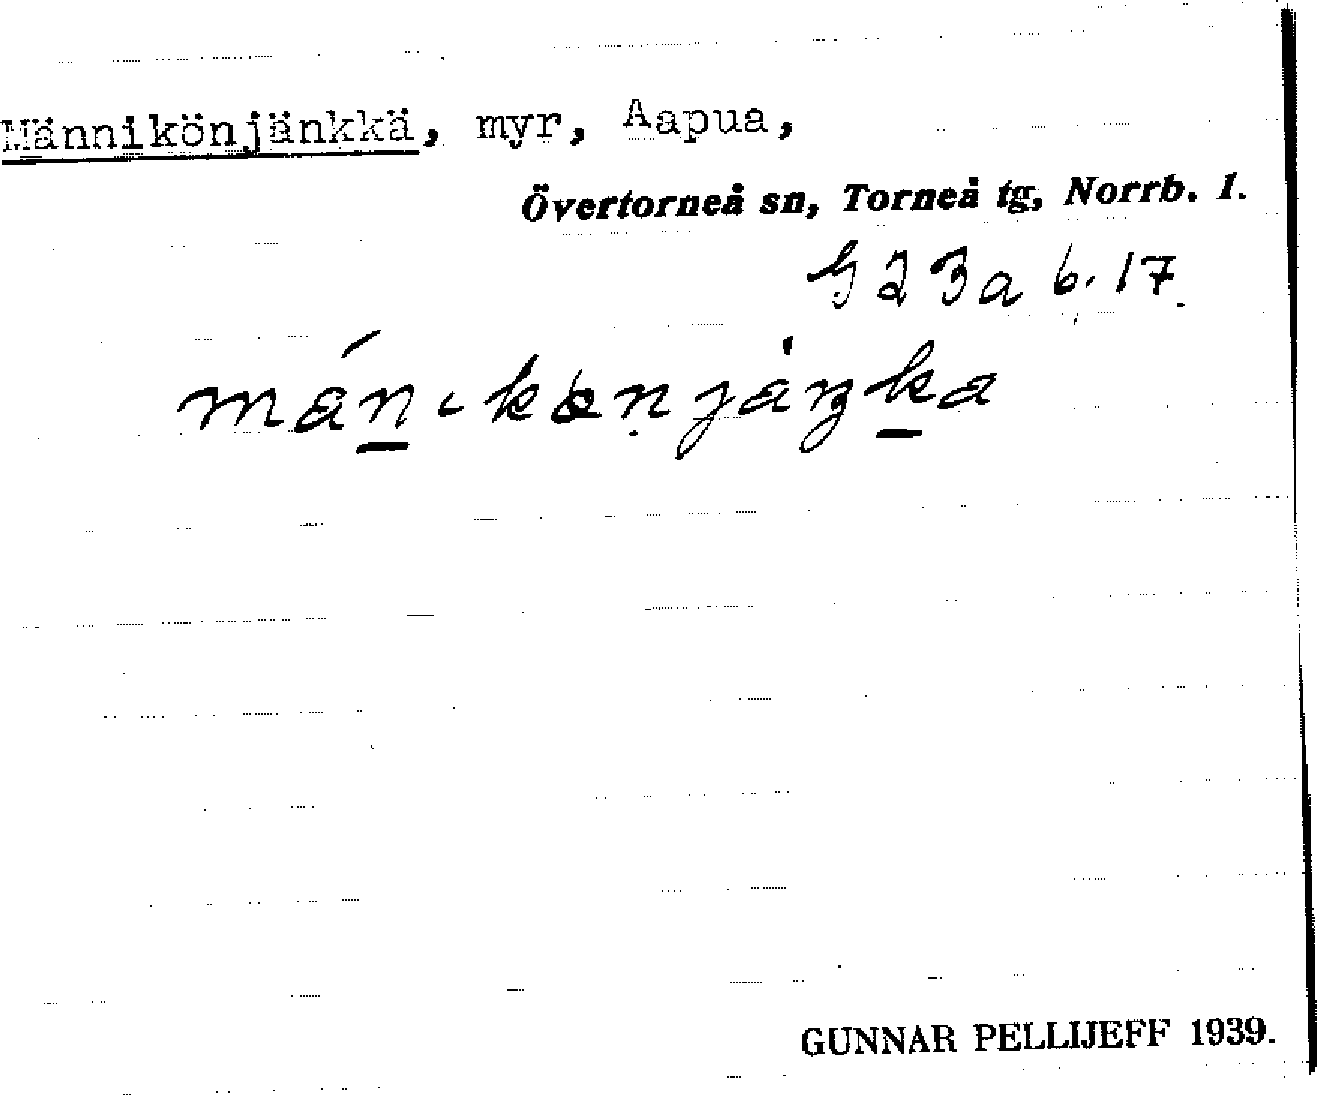 Männikönjänkkä, myr, Aapua,
Övertorneå sn, Torneå tg, Norrb. l.
G23a b. 17.
GUNNAR PELLIJEFF 1939.